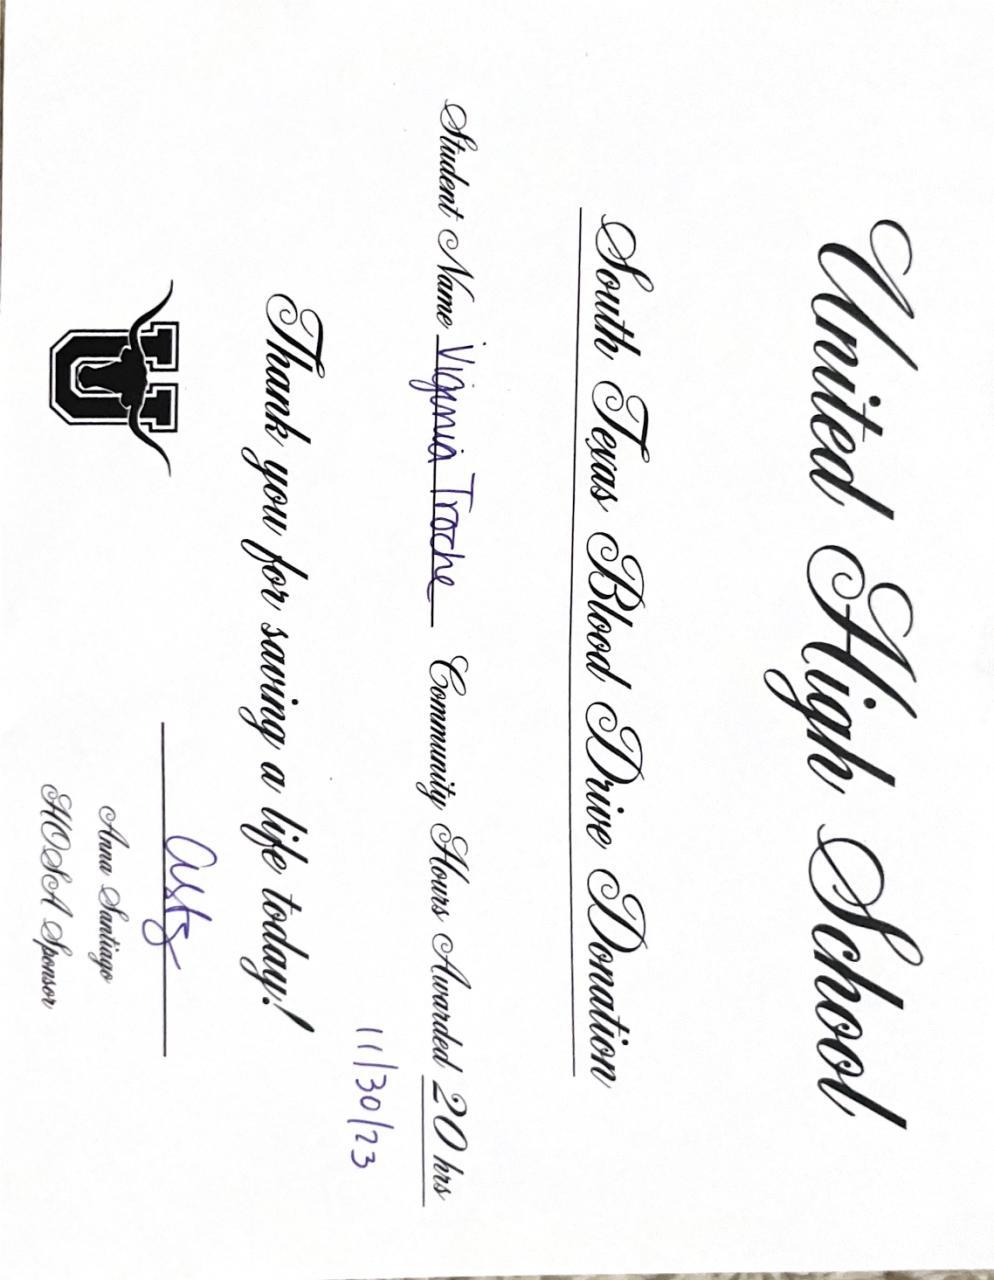 United High School
South Texas Blood Drive Donation
Student Name Viginia Troche Community Hours Awarded 20 hrs
11/30/23
Thank you for saving a life today!
U
Anna Santiago
HOSA Sponsor